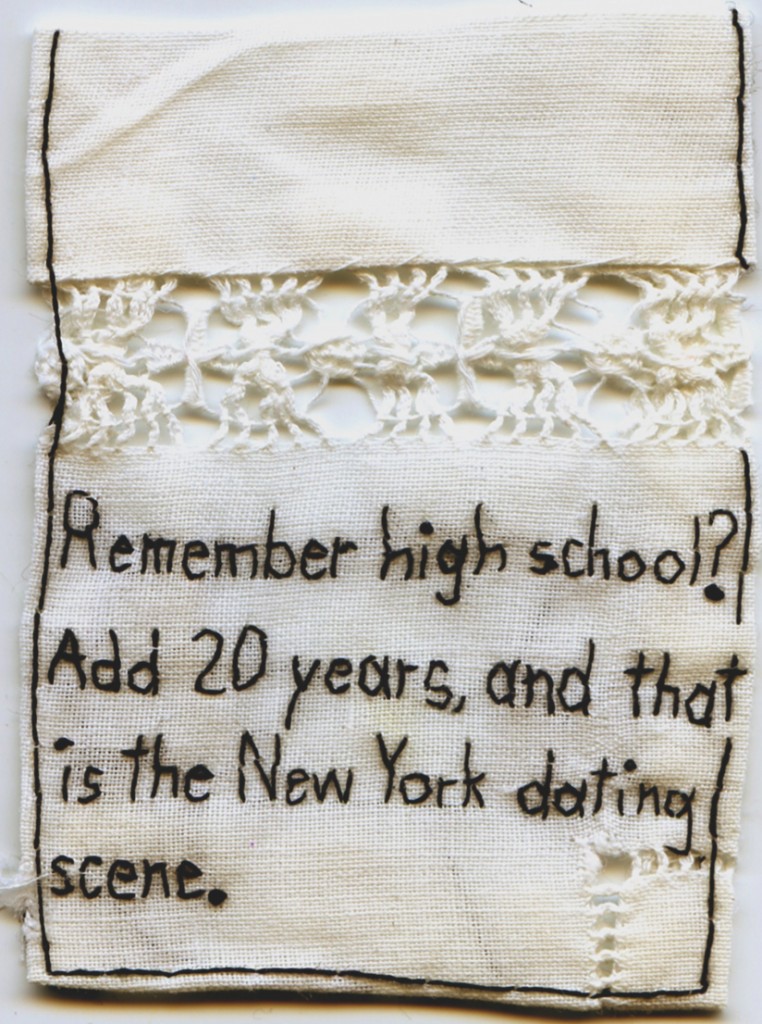 Remember high school?
Add 20 years, and that
is the New York dating
scene.